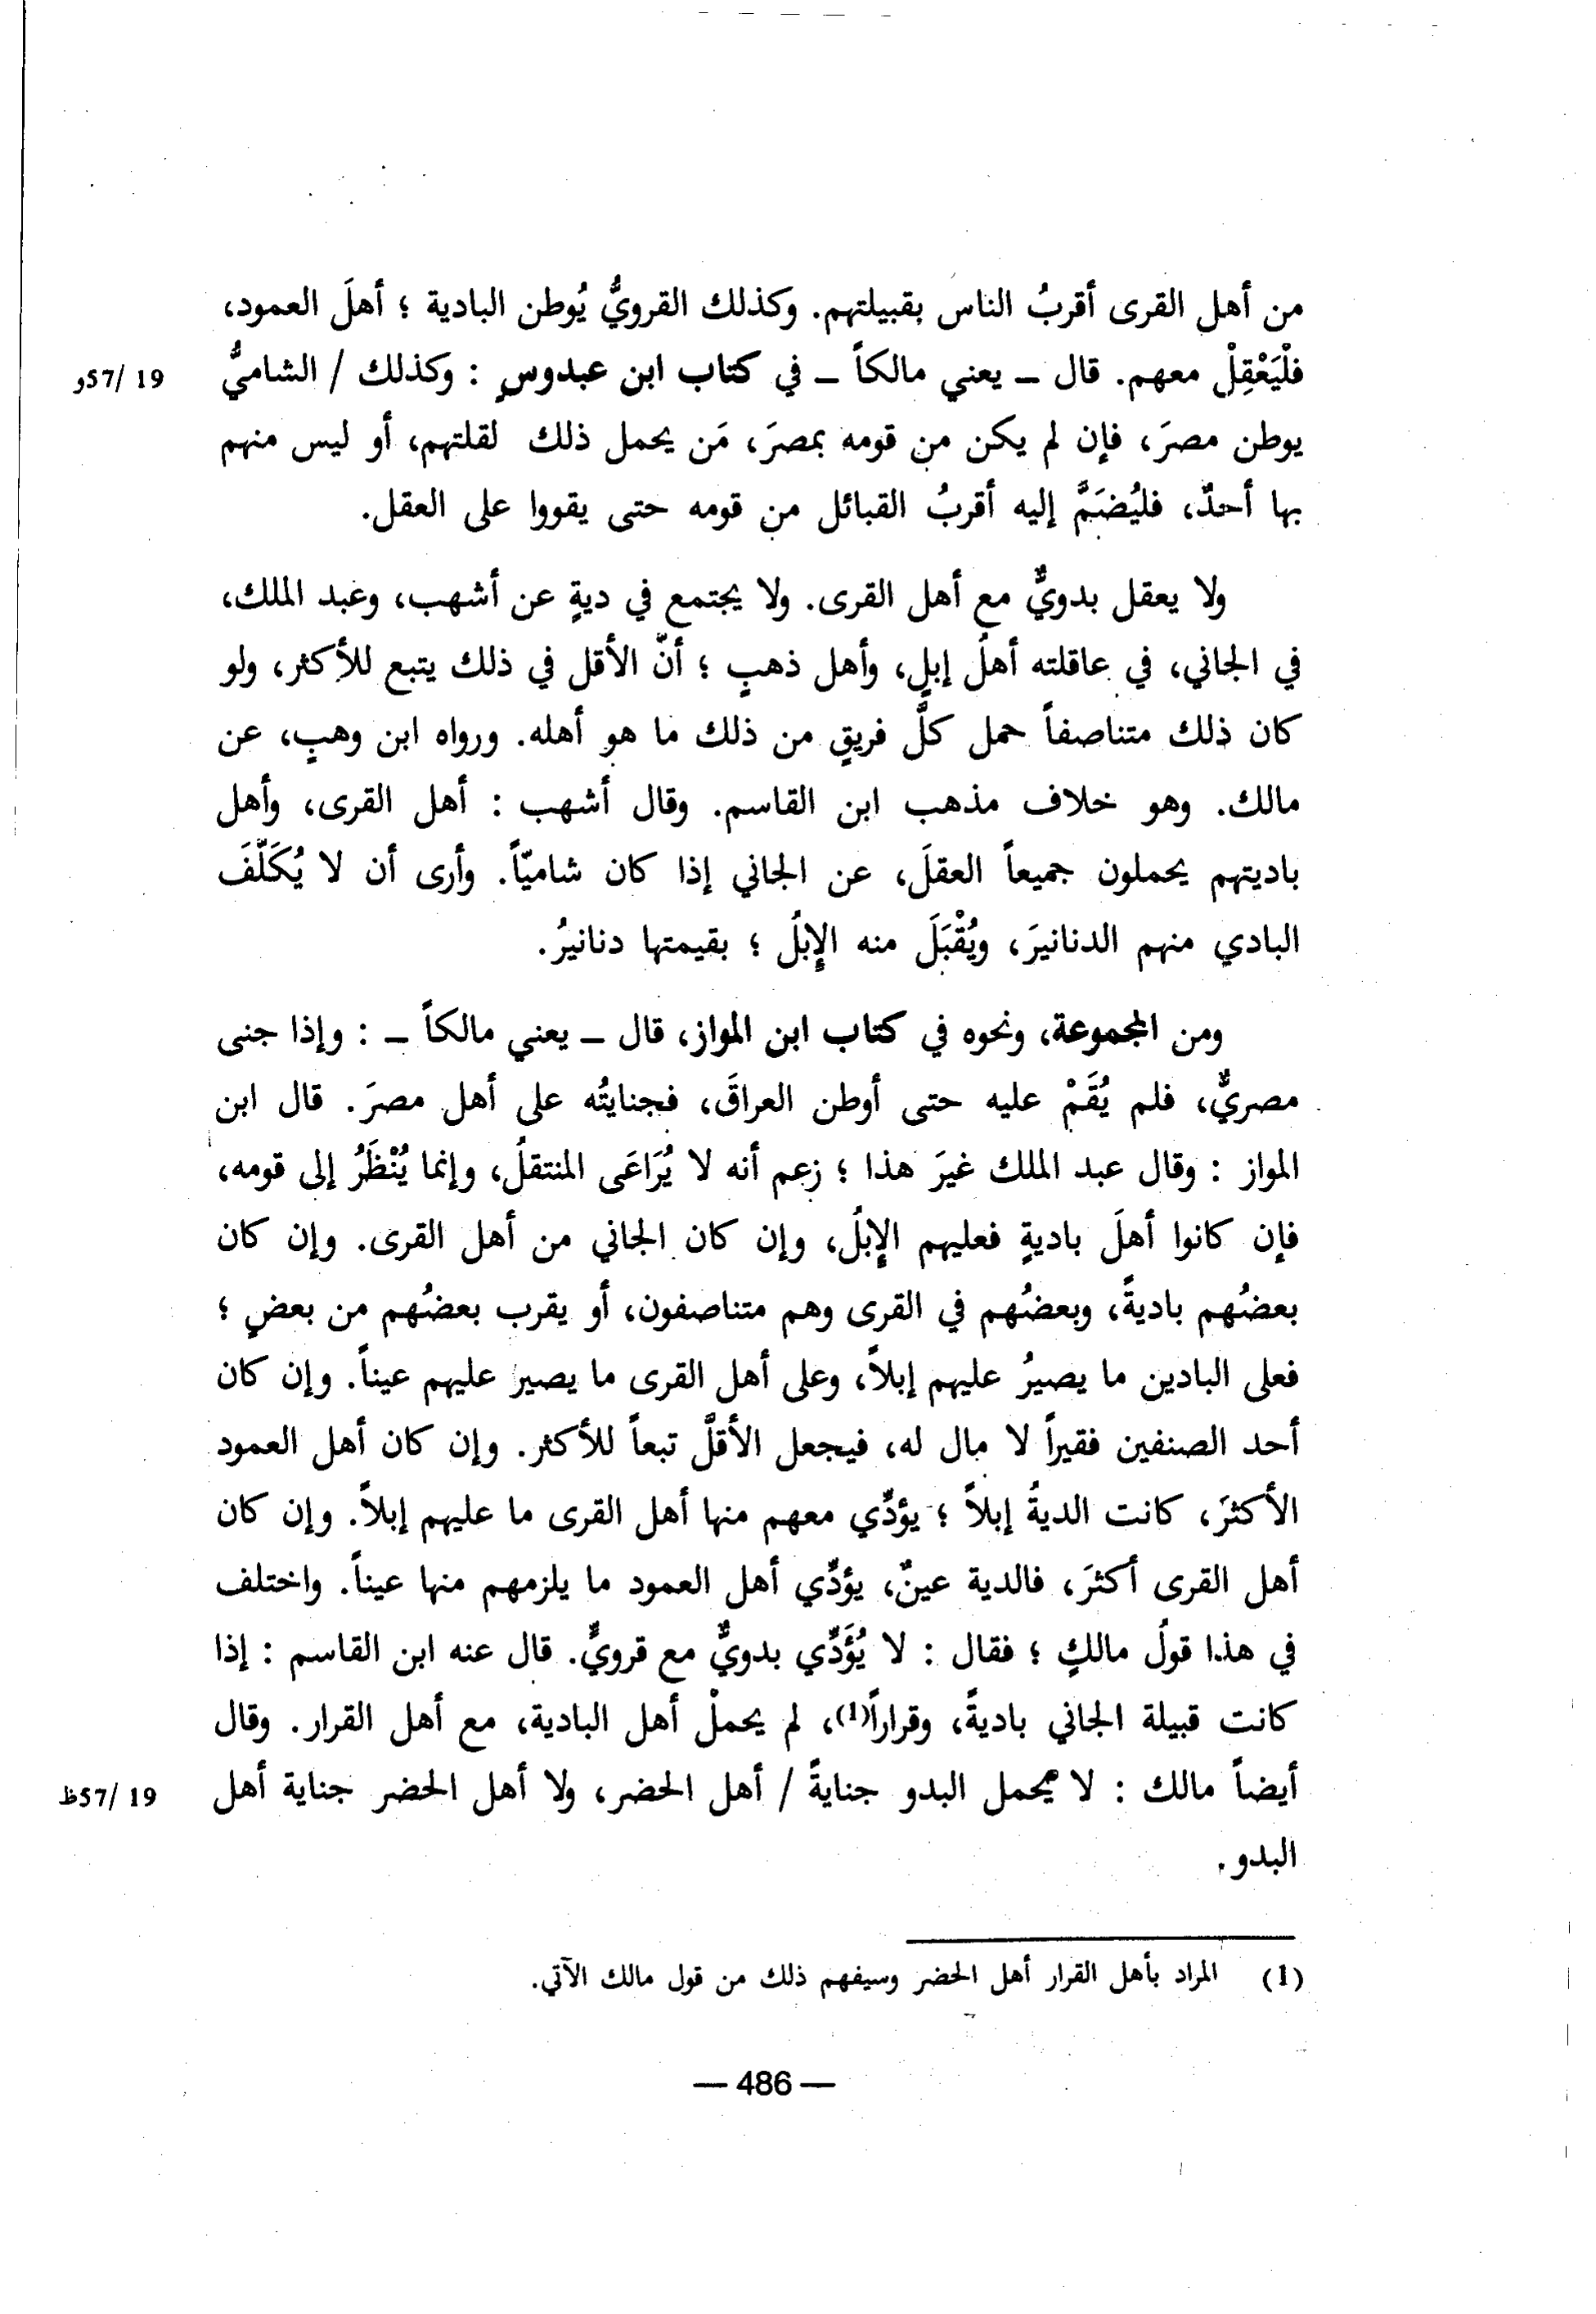 من أهل القرى أقربُ الناس بقبيلتهم. وكذلك القرويُّ يُوطن البادية ؛ أهلَ العمود،
فلْيَعْقِلْ معهم. قال ــ يعني مالكاً ــ في كتاب ابن عبدوسٍ : وكذلك / الشاميُّ
19 /57و
يوطن مصرَ، فإن لم يكن من قومه بمصرَ، مَن يحمل ذلك لقلتهم، أو ليس منهم
بها أحدٌ، فليُضَمَّ إليه أقربُ القبائل من قومه حتى يقووا على العقل.
ولا يعقل بدويٌّ مع أهل القرى. ولا يجتمع في ديةٍ عن أشهب، وعبد الملك،
في الجاني، في عاقلته أهلُ إبلٍ، وأهل ذهبٍ ؛ أنّ الأقل في ذلك يتبع للأكثر، ولو
كان ذلك متناصفاً حمل كلُّ فريقٍ من ذلك ما هو أهله. ورواه ابن وهبٍ، عن
مالك. وهو خلاف مذهب ابن القاسم. وقال أشهب : أهل القرى، وأهل
باديتهم يحملون جميعاً العقلَ، عن الجاني إذا كان شاميّاً. وأرى أن لا يُكَلَّفَ
البادي منهم الدنانيرَ، ويُقْبَلَ منه الإِبلُ ؛ بقيمتها دنانيرُ.
ومن المجموعة، ونحوه في كتاب ابن المواز، قال ــ يعني مالكاً ــ : وإذا جنى
مصريٌّ، فلم يُقَمْ عليه حتى أوطن العراقَ، فجنايتُه على أهل مصرَ. قال ابن
المواز : وقال عبد الملك غيرَ هذا ؛ زعم أنه لا يُرَاعَى المنتقلُ، وإنما يُنْظَرُ إلى قومه،
فإن كانوا أهلَ باديةٍ فعليهم الإِبلُ، وإن كان الجاني من أهل القرى. وإن كان
بعضُهم باديةً، وبعضُهم في القرى وهم متناصفون، أو يقرب بعضُهم من بعضٍ ؛
فعلى البادين ما يصيرُ عليهم إبلاً، وعلى أهل القرى ما يصير عليهم عيناً. وإن كان
أحد الصنفين فقيراً لا مال له، فيجعل الأقلَّ تبعاً للأكثر. وإن كان أهل العمود
الأكثرَ، كانت الديةُ إبلاً ؛ يؤدِّي معهم منها أهل القرى ما عليهم إبلاً. وإن كان
أهل القرى أكثرَ، فالدية عينٌ، يؤدِّي أهل العمود ما يلزمهم منها عيناً. واختلف
في هذا قولُ مالكٍ ؛ فقال : لا يُؤَدِّي بدويٌّ مع قرويٍّ. قال عنه ابن القاسم : إذا
كانت قبيلة الجاني باديةً، وقراراً(1)، لم يحملْ أهل البادية، مع أهل القرار. وقال
أيضاً مالك : لا يحمل البدو جنايةً / أهل الحضر، ولا أهل الحضر جناية أهل
19 /57ظ
البدو.
(1) المراد بأهل القرار أهل الحضر وسيفهم ذلك من قول مالك الآتي.
— 486 —